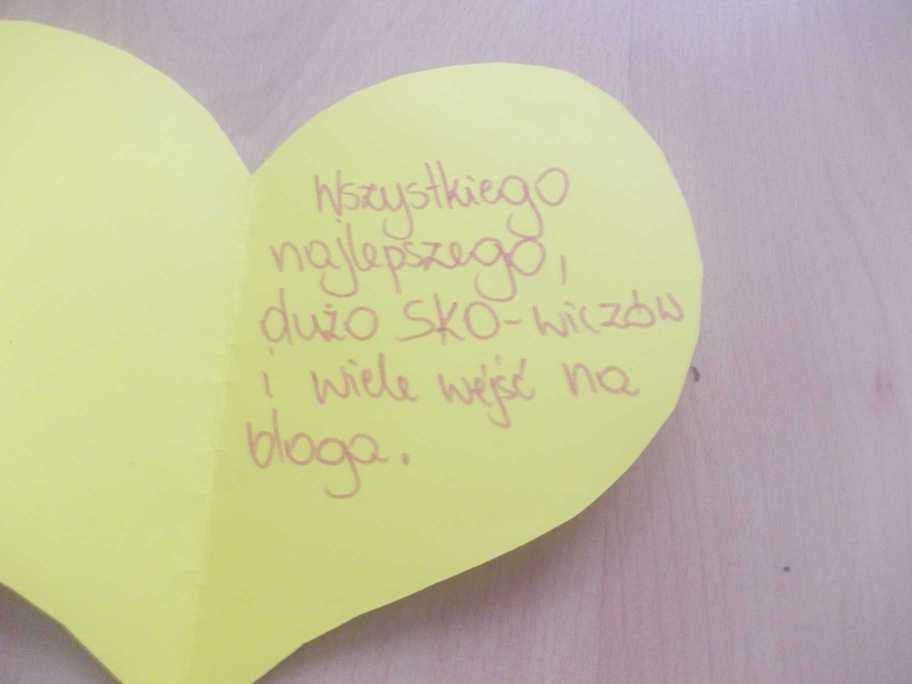 Wszystkiego
najlepszego,
dużo SKO-wiczów
i wiele wejść na
bloga.